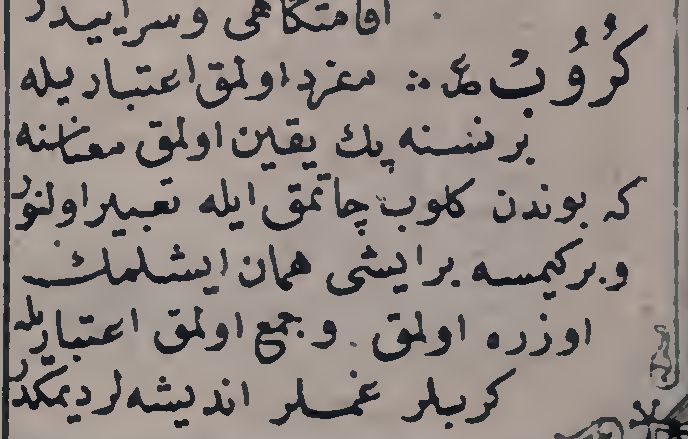 اقامتكاهى وسرايیدر
كُرُوبْ ع : مفرد اولمق اعتباريله
برنسنه پك يقين اولمق معناسنه
كه بوندن كلوب چاتمق ايله تعبير اولنور
وبركيمسه برايشى همان ايشلمك
اوزره اولمق . وجمع اولمق اعتباريله
كربلر غملر انديشه لر ديمكدر